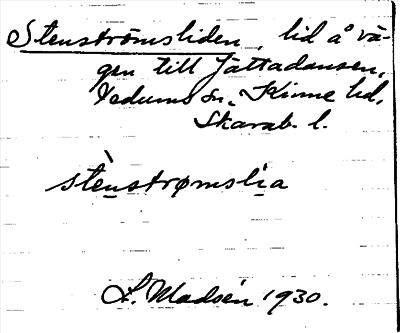 Stenströmsliden, lid å vä-
gen till Jättadansen,
Vedums sn, Kinne hd,
Skarab. l.
stènstrømslia
L. Madsén 1930.